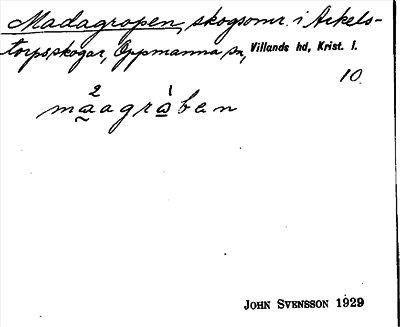 Madagropen, skogsomr. i Arkels-
torpsskogar, Oppmanna sn, Villands hd, Krist. l.
10.
2 1
maagraben
JOHN SVENSSON 1929